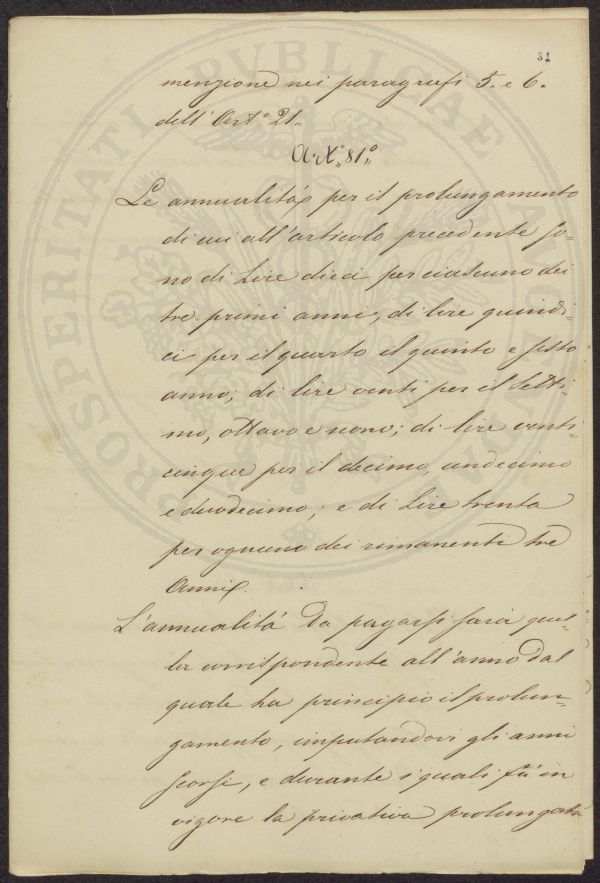 31
menzione nei paragrafi 5. e 6.
dell'Art.° 21.
Art.° 81.°
Le annualità per il prolungamento
di cui all'articolo precedente so-
no di Lire dieci per ciascuno dei
tre primi anni, di lire quindi-
ci per il quarto il quinto e sesto
anno; di lire venti per il setti-
mo, ottavo e nono; di lire venti-
cinque per il decimo, undecimo
e duodecimo; e di Lire trenta
per ognuno dei rimanenti tre
Anni.
L'annualità da pagarsi sarà quel-
la corrispondente all'anno dal
quale ha principio il prolun-
gamento, imputandovi gli anni
scorsi, e durante i quali fù in
vigore la privativa prolungata
PROSPERITATI PVBLICAE AVGENDAE